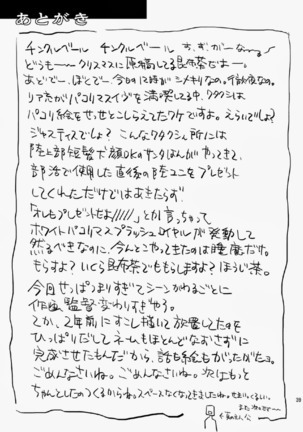 あとがき
チンクルベール チンクルベール すぎがーな〜〜
どうも〜〜クリスマスに原稿してる昆布茶だよー。
あとで〜、ぼとで〜。今日の12時がシメキリなの。
リア充がパコリマスイヴを満喫してる中、ワタクシは
パコリ絵をせっせとこしらえてたワケですよ。えらいでしょ?
ジャスティスでしょ? こんなワタクシん所には
陸上部短髪犬顔DKのサンタほんがやってきて、
部活で使用した直後の陸ユニをプレゼント
してくれただけではあきたらず!
「オレもプレゼントだよ/////」とか言っちゃって
ホワイトパコリマスプラッシュロイヤルが発動して
然るべきなのに、今んとこやってきたのは睡魔だけ。
もらすよ?いくら昆布茶でももらしますよ?ほうじ茶。
今回せっぱつまりすぎてシーンかわるごとに
作画監督変わりすぎやろ。
てか、2年前にすこし描いて放置してたのを
ひっぱりだしてネームもほとんどなおさずに
完成させたもんだから、話も絵もがったがたヨ。
ごめんなさいね。ごめんなさいね。次はもっと
ちゃんとしたのつくるからね。スペースなくなってきましたね。せまいくるしい。
また次回で〜